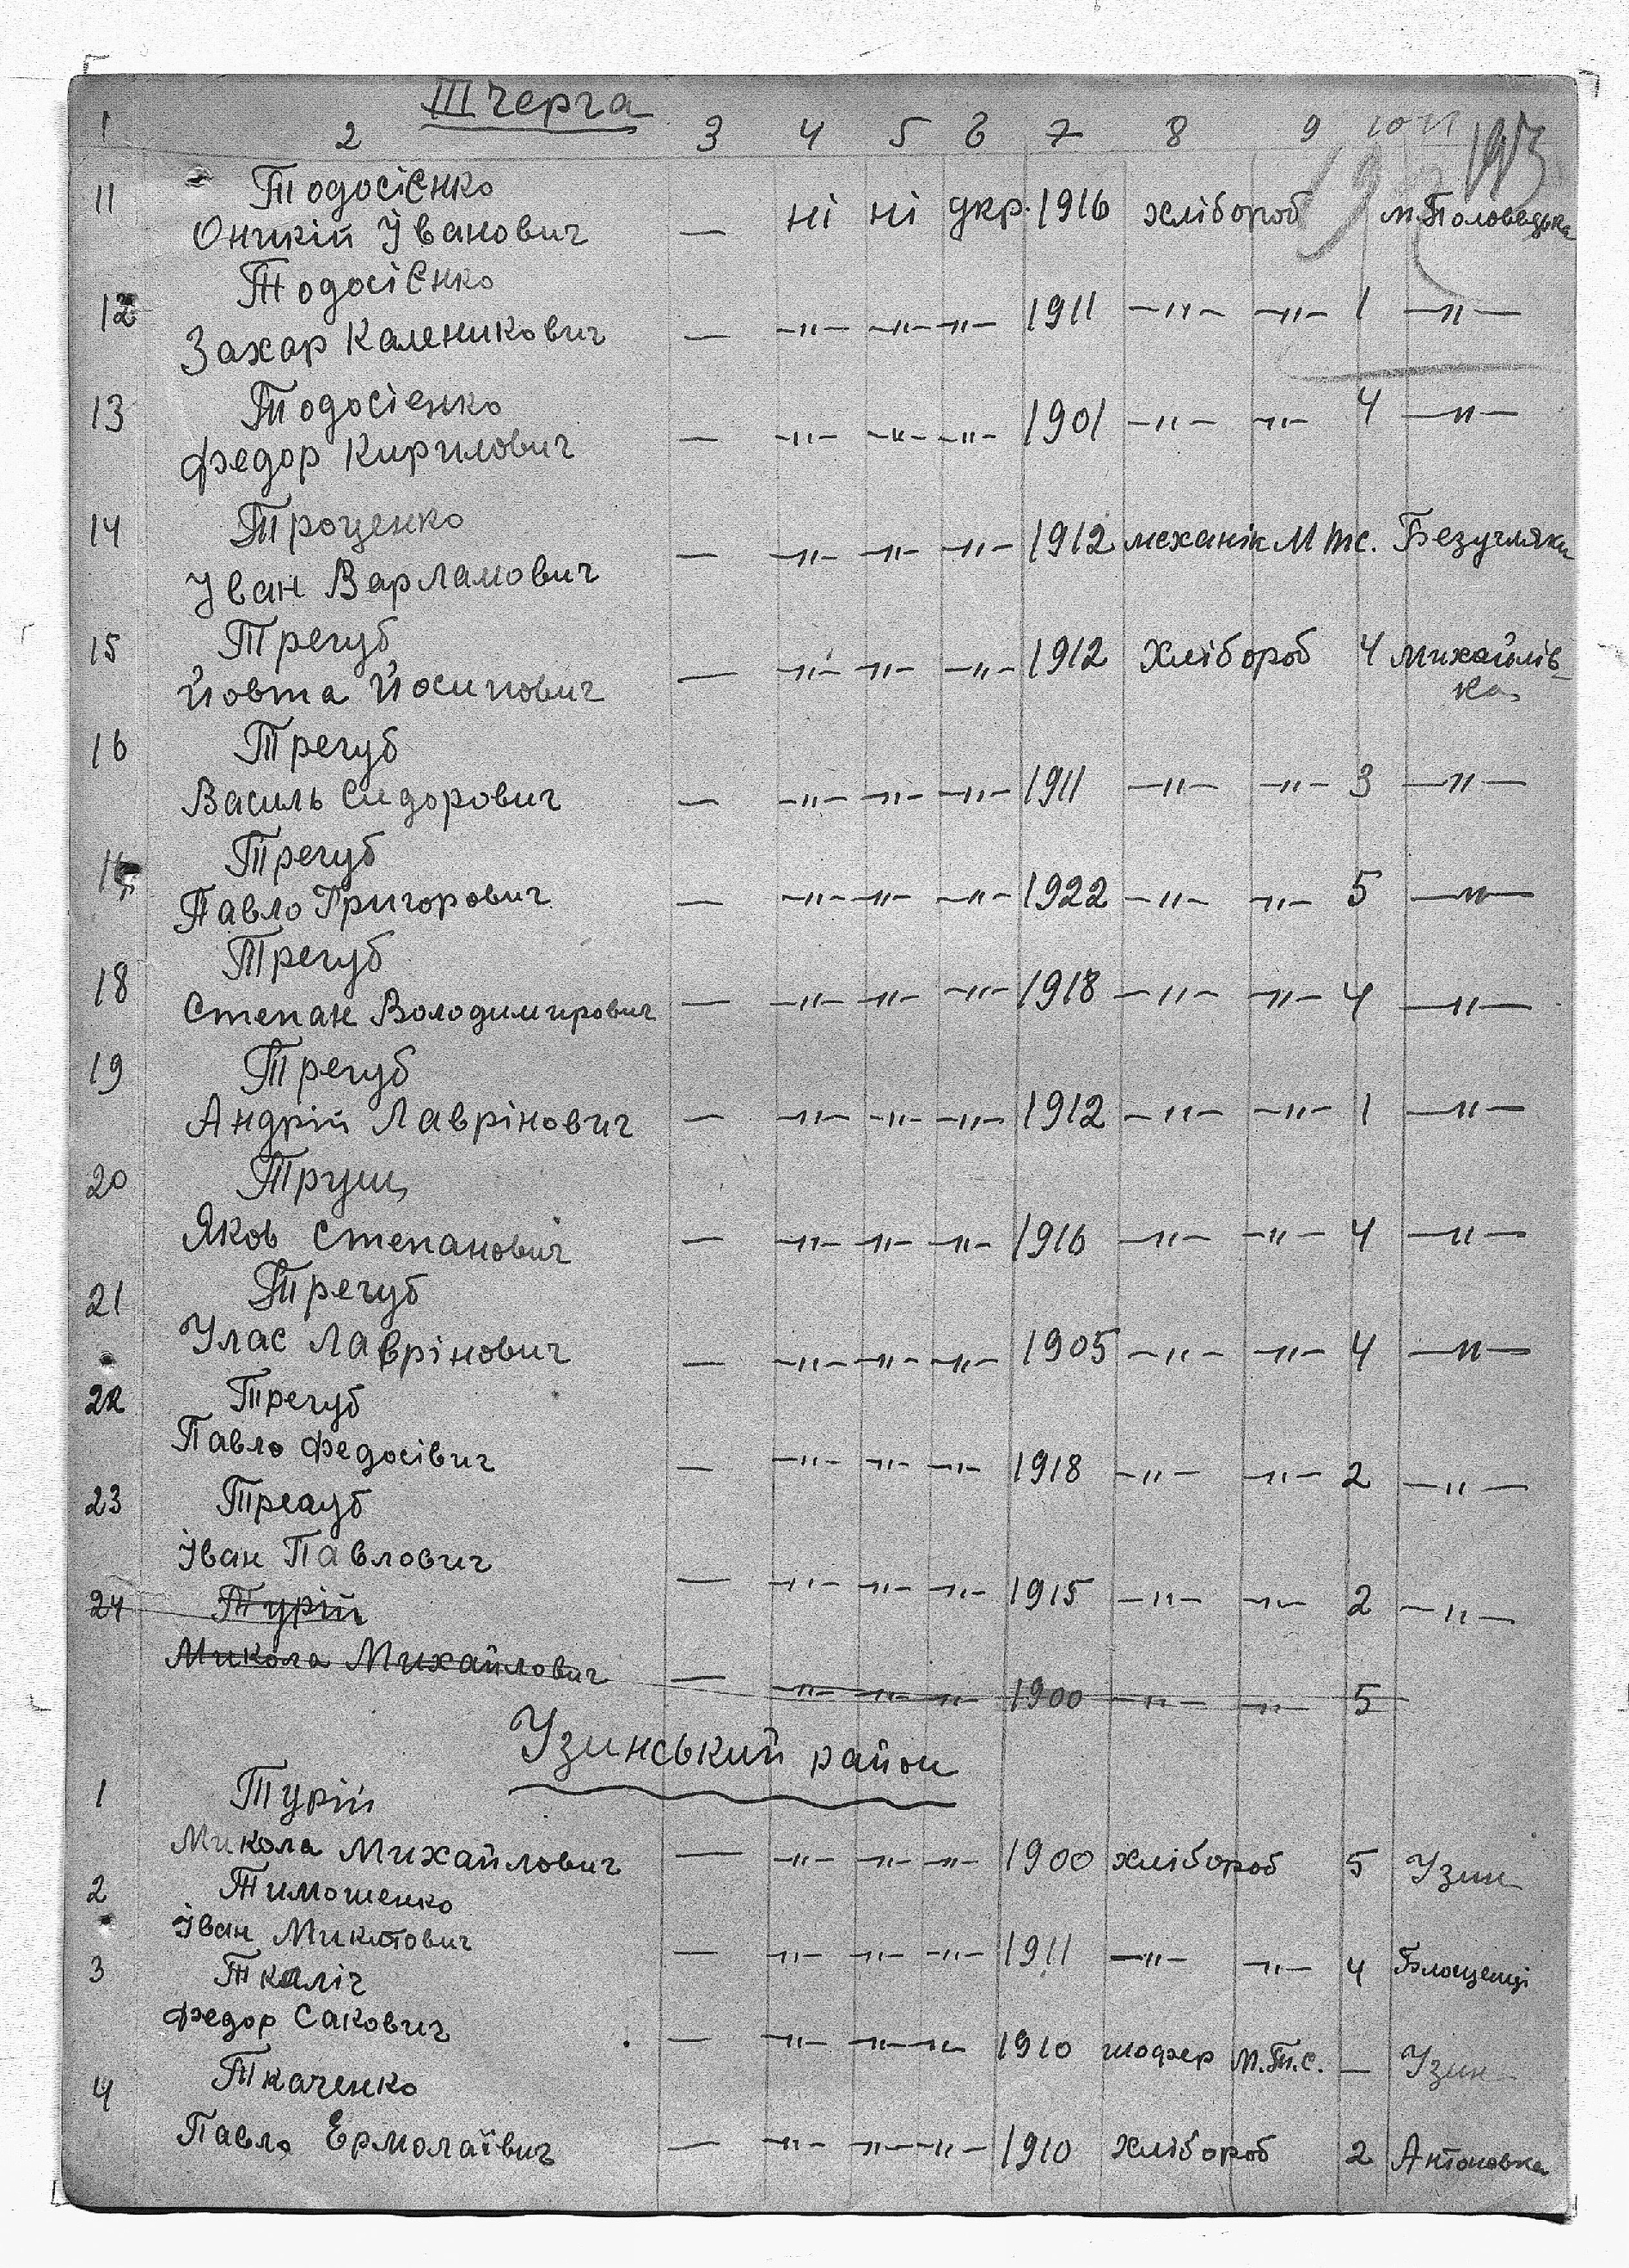 III черга
1 2 3 4 5 6 7 8 9 10 11
193
11 Тодосієнко
Оникій Іванович — ні ні укр. 1916 хлібороб м. Половецька
12 Тодосієнко
Захар Каленикович — —"— —"— —"— 1911 —"— —"— 1 —"—
13 Тодосіенко
Федор Кирилович — —"— —"— —"— 1901 —"— —"— 4 —"—
14 Троценко
Іван Варламович — —"— —"— —"— 1912 механік М тс. Безугляки
15 Трегуб
Йовта Йосипович — —"— —"— —"— 1912 Хлібороб 4 Михайлів-
ка
16 Трегуб
Василь Сидорович — —"— —"— —"— 1911 —"— —"— 3 —"—
17 Трегуб
Павло Григорович — —"— —"— —"— 1922 —"— —"— 5 —"—
18 Трегуб
Степан Володимирович — —"— —"— —"— 1918 —"— —"— 4 —"—
19 Трегуб
Андрій Лаврінович — —"— —"— —"— 1912 —"— —"— 1 —"—
20 Трущ
Яков Степанович — —"— —"— —"— 1916 —"— —"— 4 —"—
21 Трегуб
Улас Лаврінович — —"— —"— —"— 1905 —"— —"— 4 —"—
22 Трегуб
Павло Федосівич — —"— —"— —"— 1918 —"— —"— 2 —"—
23 Трегуб
Іван Павлович — —"— —"— —"— 1915 —"— —"— 2 —"—
24 Турій
Микола Михайлович — —"— —"— —"— 1900 —"— —"— 5
Узинський район
1 Турій
Микола Михайлович — —"— —"— —"— 1900 хлібороб 5 Узин
2 Тимошенко
Іван Микитович — —"— —"— —"— 1911 —"— —"— 4 Блощенці
3 Ткаліч
Федор Сакович — —"— —"— —"— 1910 шофер М.Т.С. — Узин
4 Ткаченко
Павло Ермолаївич — —"— —"— —"— 1910 хлібороб 2 Антоновка